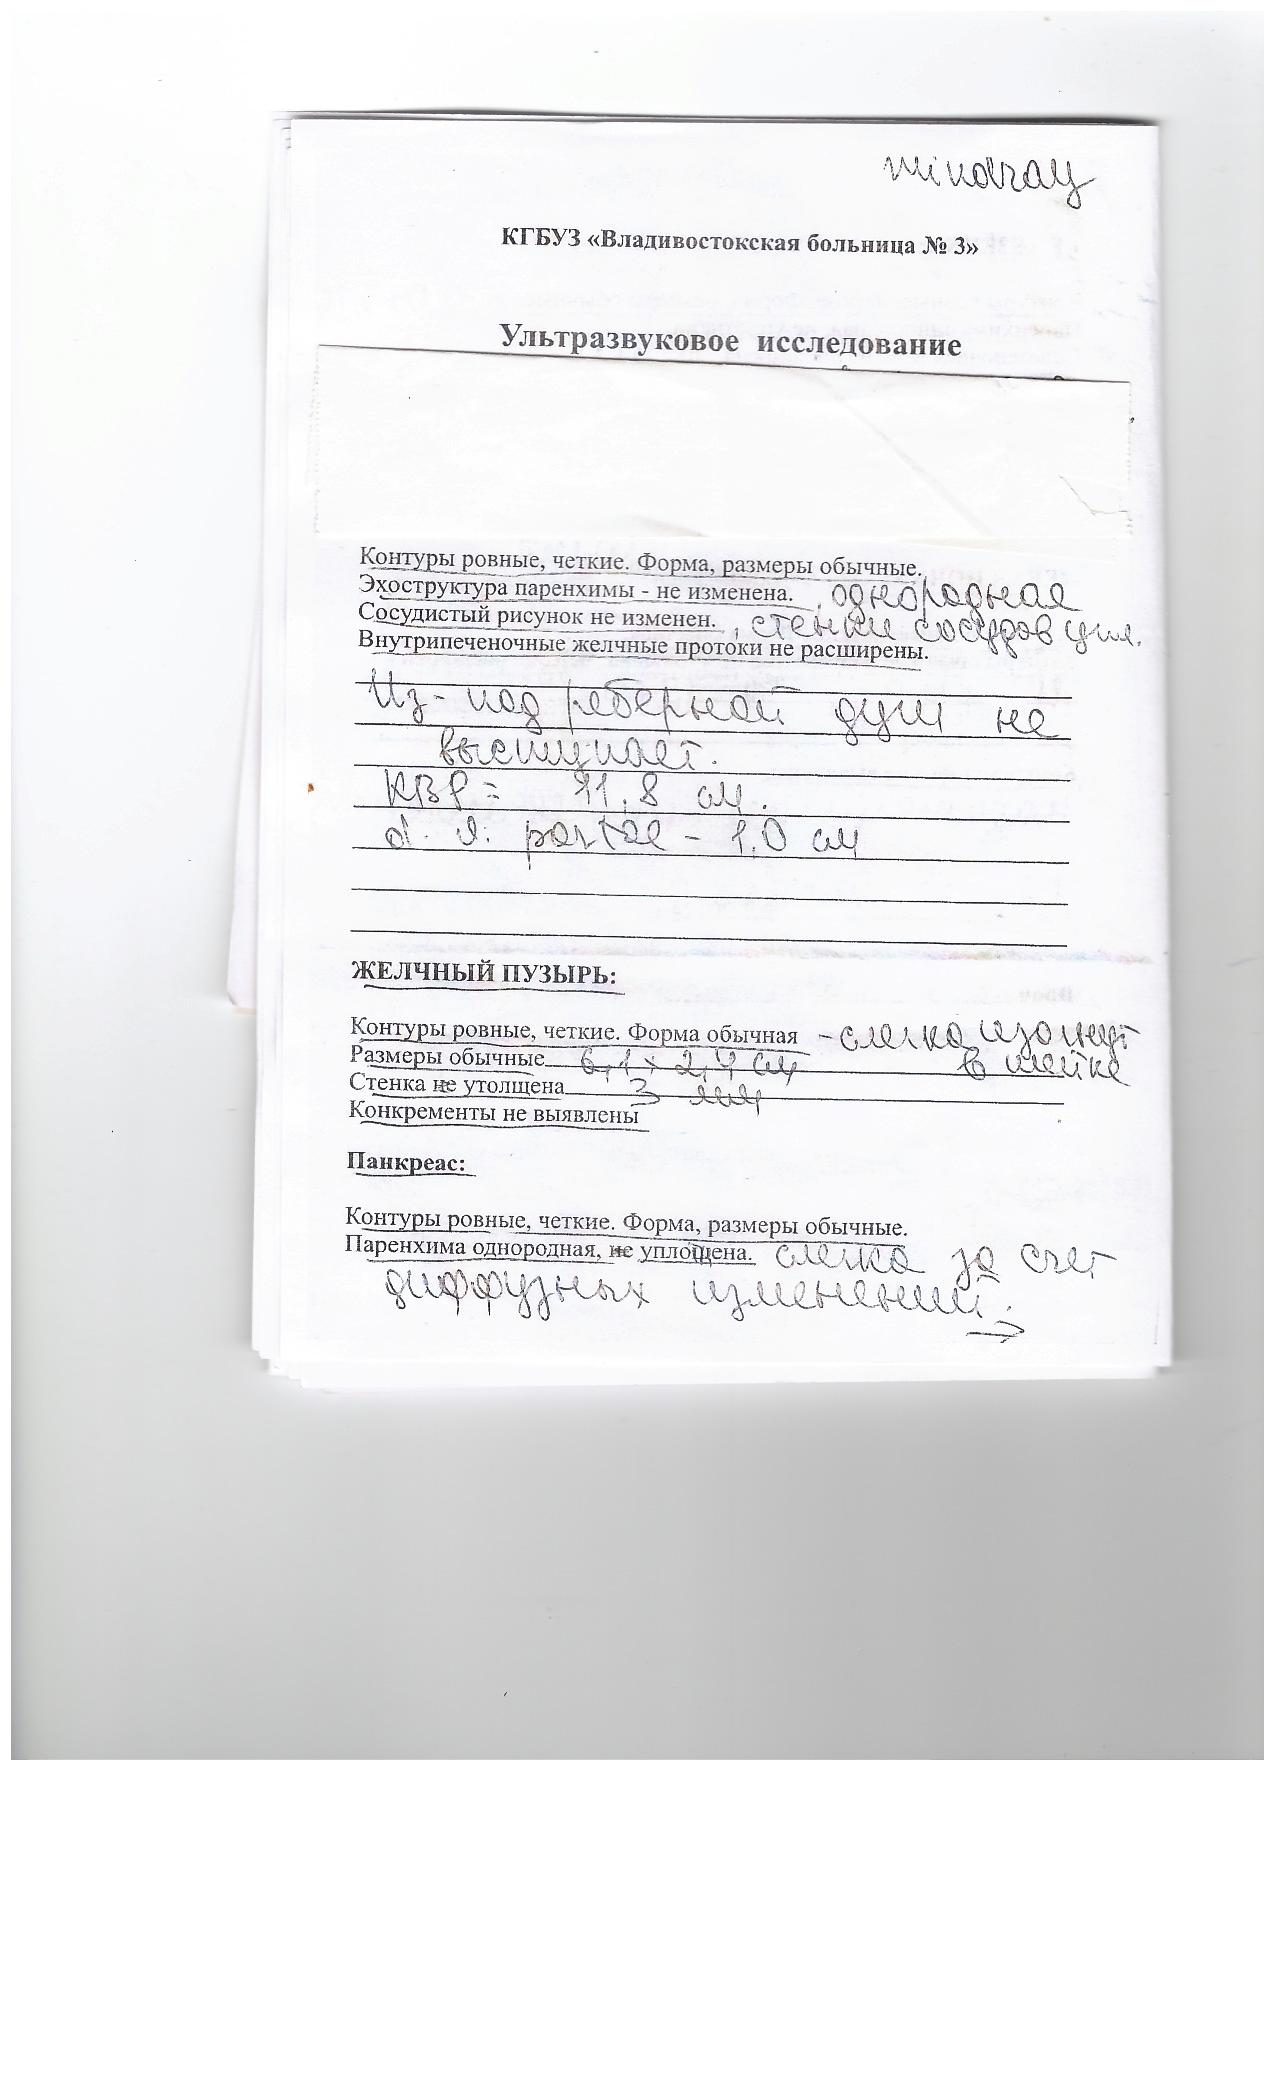 mindray
КГБУЗ «Владивостокская больница № 3»
Ультразвуковое исследование
Контуры ровные, четкие. Форма, размеры обычные.
Эхоструктура паренхимы - не изменена. , однородная
Сосудистый рисунок не изменен. , стенки сосудов упл.
Внутрипеченочные желчные протоки не расширены.
Из-под реберной дуги не
выступает.
КВР = 11,8 см.
d. v. portae - 1,0 см
ЖЕЛЧНЫЙ ПУЗЫРЬ:
Контуры ровные, четкие. Форма обычная - слегка изогнут
Размеры обычные 6,1 x 2,4 см в шейке
Стенка не утолщена 3 мм
Конкременты не выявлены
Панкреас:
Контуры ровные, четкие. Форма, размеры обычные.
Паренхима однородная, не уплощена. слегка за счет
диффузных изменений.
→